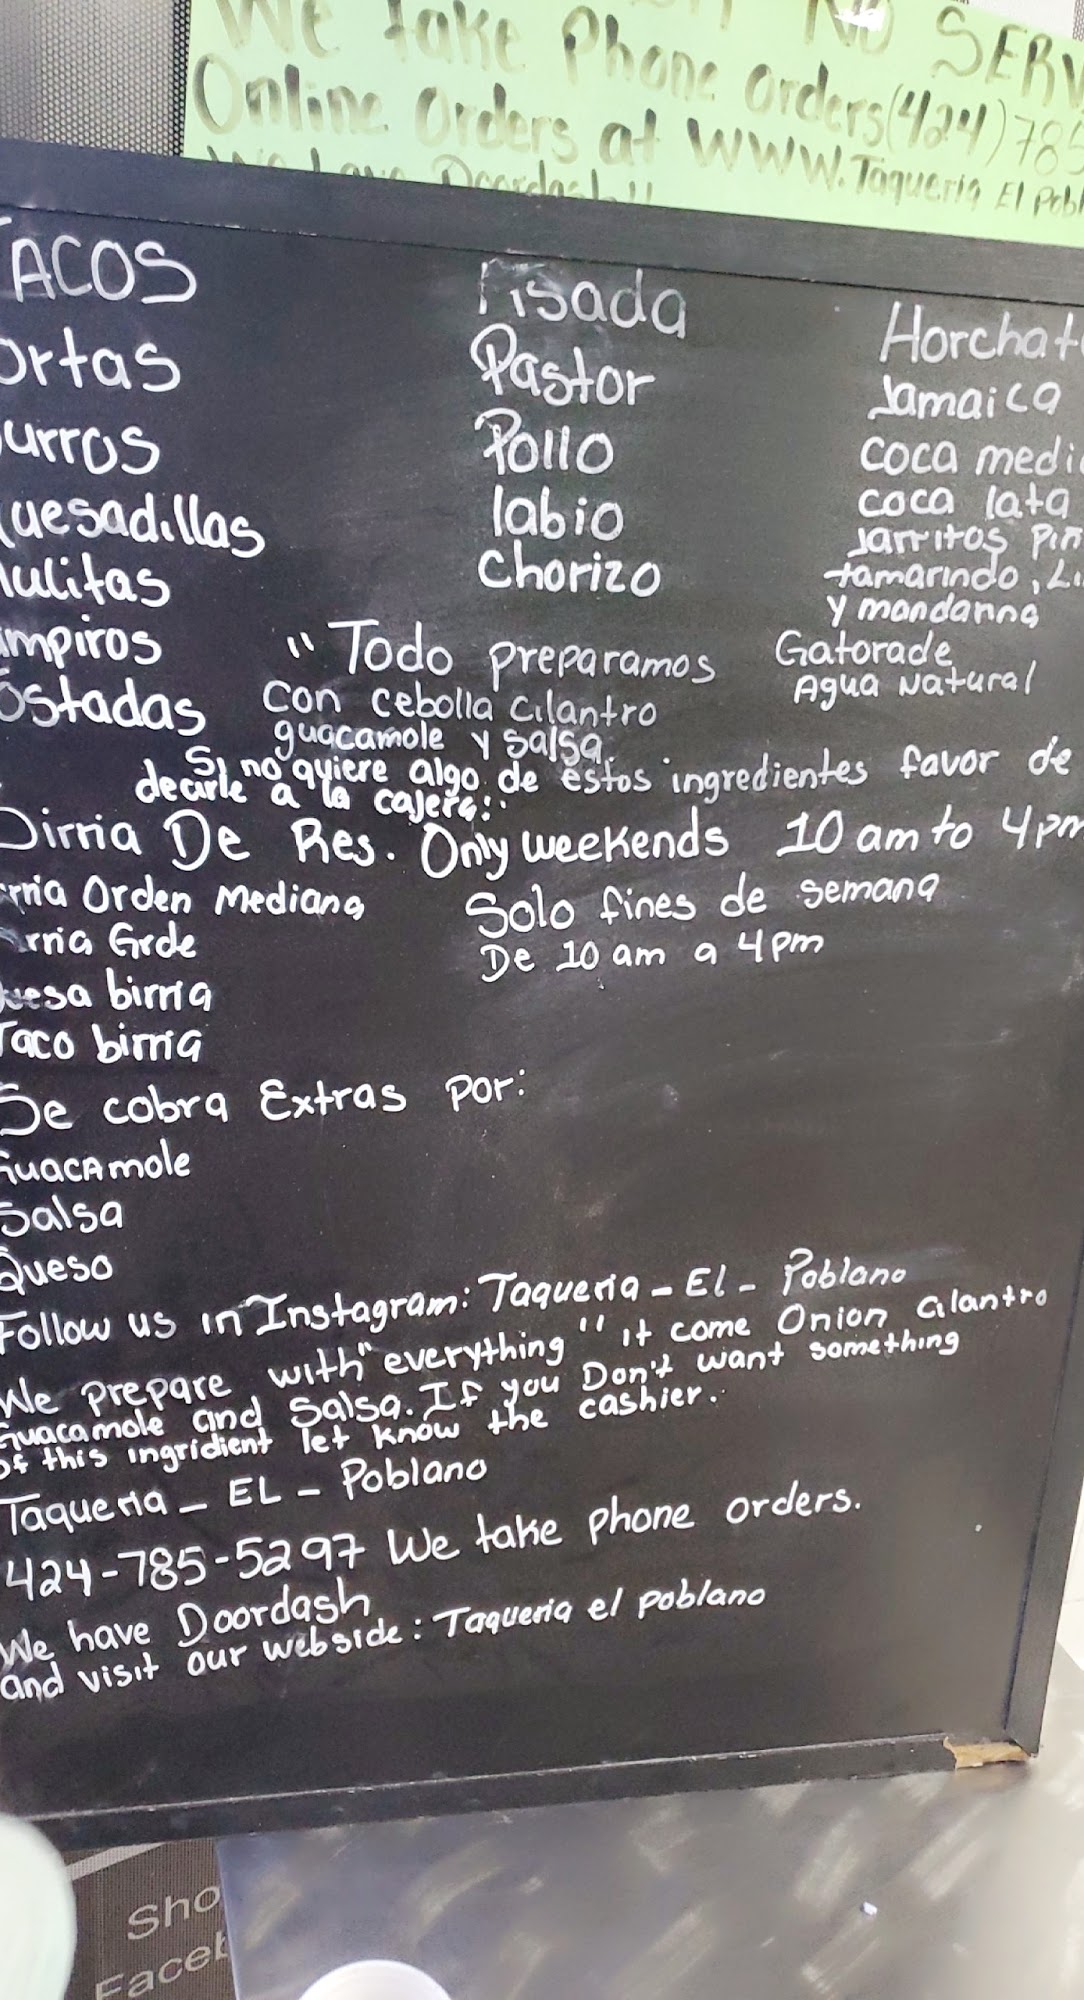 We take Phone orders (424) 785
NO SERV
Online Orders at WWW.Taqueria El Pobl
We have Doordash!!
TACOS
ortas
urros
uesadillas
ulitas
ampiros
ostadas
Asada
Pastor
Pollo
labio
Chorizo
Horchat
Jamaica
coca medi
coca lata
Jarritos Piñ
tamarindo, Li
y mandanna
Gatorade
Agua Natural
"Todo preparamos
con cebolla cilantro
guacamole y salsa.
Si no quiere algo de estos ingredientes favor de
decirle a la cajera:.
Birria De Res. Only weekends 10 am to 4 pm
rria Orden Mediana
rria Grde
uesa birria
Taco birria
Solo fines de semana
De 10 am a 4 pm
Se cobra Extras por:
Guacamole
Salsa
Queso
Follow us in Instagram: Taqueria - El - Poblano
We prepare with "everything" it come Onion cilantro
Guacamole and Salsa. If you Don't want something
of this ingridient let know the cashier.
Taqueria - EL - Poblano
424-785-5297 We take phone orders.
We have Doordash
and visit our webside: Taqueria el poblano
Sho
Faceb